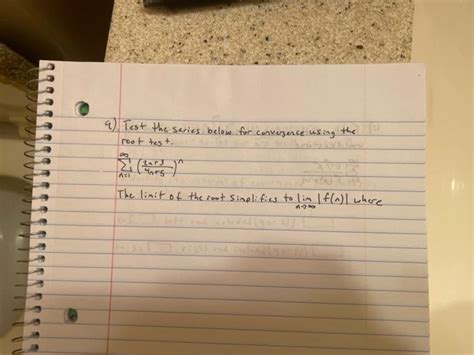 9) Test the series below for convergence using the
root test.
∞
Σ (3n+3/4n+5)^n
n=1
The limit of the root simplifies to lim |f(n)| where
n→∞